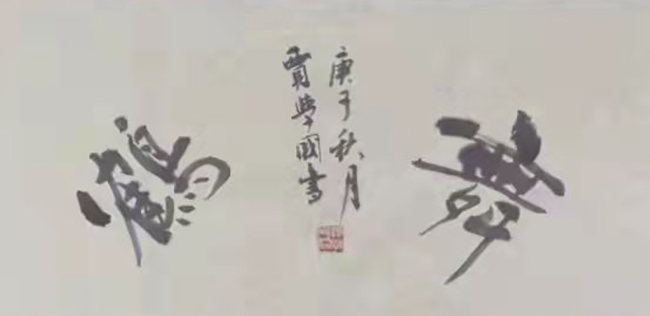 舞
庚子秋月
賈學國書
鶴